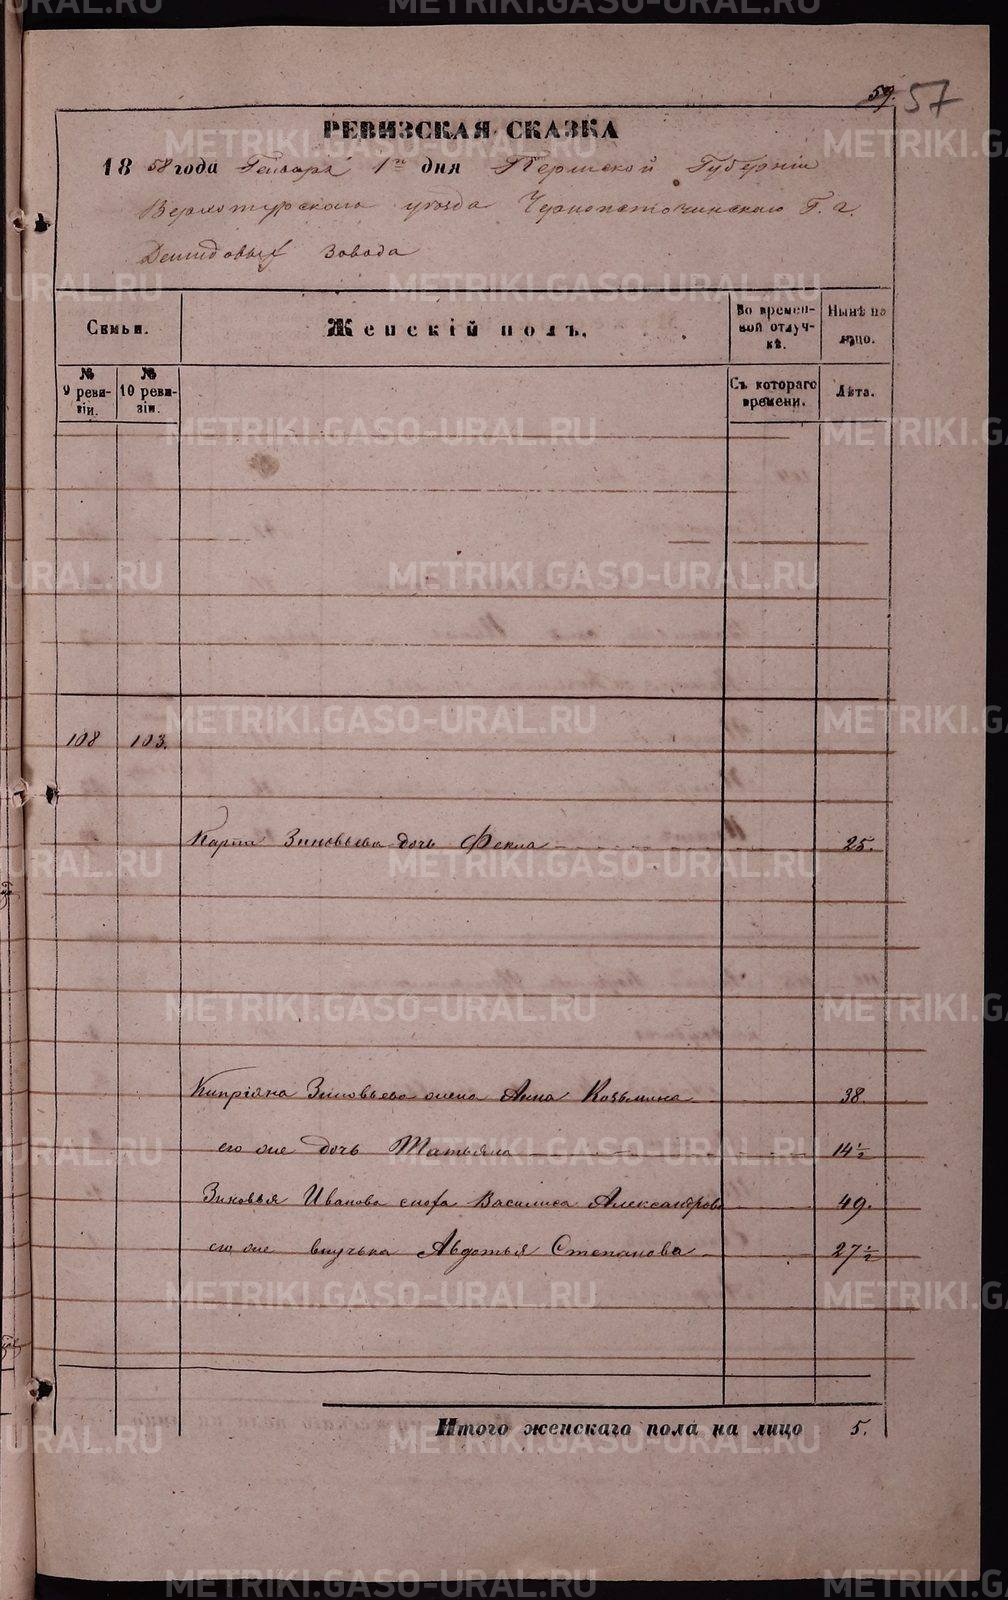 59. 57
РЕВИЗСКАЯ СКАЗКА
1858 года Генваря 1го дня Пермской Губерніи
Верхотурскаго уѣзда Черноисточинскаго Г. г.
Демидовыхъ завода
Семьи.
Женскій полъ.
Во времен-
ной отлуч-
кѣ.
Нынѣ на
лицо.
№
9 реви-
зіи.
№
10 реви-
зіи.
Съ котораго
времени.
Лѣта.
108 103.
Карпа Зиновьева дочь Фекла 25.
Кипріяна Зиновьева жена Анна Козьмина 38.
его же дочь Татьяна 14½
Зиновья Иванова сноха Василиса Александрова 49.
его же внучька Авдотья Степанова 27½
Итого женскаго пола на лицо 5.
METRIKI.GASO-URAL.RU